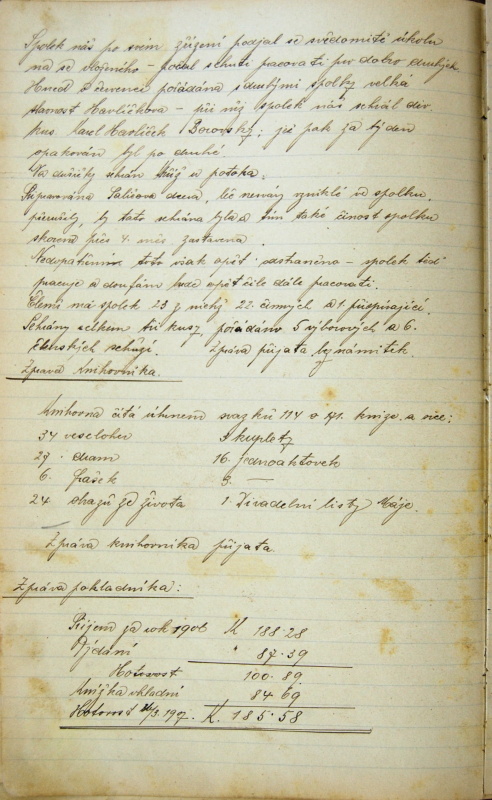 Spolek náš po svém zřízení podjal se svědomitě úkolu
na se vloženého – počal s chutí pracovati pro dobro
Hned v červenci pořádána s druhými spolky velká
slavnost Havlíčkova – při níž spolek náš sehrál div.
kus Karel Havlíček Borovský; jež pak za týden
opakován byl po druhé.
Na dušičky sehrán Kříž u potoka.
Připravována Paličova dcera, leč nesváry vzniklé ve spolku,
by tato sehrána byla a tím také činost spolku
skorem přes 4. měs. zastavena.
toto však opět odstraněno – spolek teď
pracuje a doufám bude opět čile dále pracovati.
Členů má spolek 23 z nichž 22 činných a 1 přispívající.
Sehrány celkem tři kusy, pořádáno 5 výborových a 6.
členských schůzí. Zpráva přijata bez námitek.
Zpráva knihovníka.
Knihovna čítá úhrnem svazků 114 o 141. knize. a sice:
34 veseloher 9 kuplety
27. dram 16. jednoaktovek
6. frašek 3. —
24. obrazů ze života 1. Divadelní listy Máje.
Zpráva knihovníka přijata
Zpráva pokladníka:
Příjem za rok 1906 K 188·28
Vydání " 87·39
Hotovost 100·89
Knížka vkladní 84·69
Hotovost /3. 1907. K. 185·58